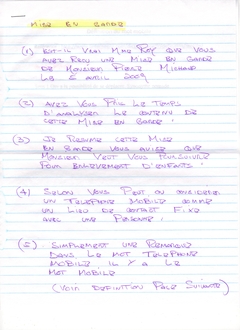 MISE EN GARDE
(1) EST-IL VRAI MME ROY QUE VOUS
AVEZ REÇU UNE MISE EN GARDE
DE MONSIEUR PIERRE MICHAUD
LE 2 AVRIL 2009
(2) AVEZ VOUS PRIS LE TEMPS
D'ANALYSER LE CONTENU DE
CETTE MISE EN GARDE.
(3) JE RESUME CETTE MISE
EN GARDE VOUS AVISE QUE
MONSIEUR VEUT VOUS POURSUIVRE
POUR ENLEVEMENT D'ENFANTS!
(4) SELON VOUS PEUT ON CONSIDERER
UN TELEPHONE MOBILE COMME
UN LIEU DE CONTACT FIXE
AVEC UNE PERSONNE!
(5) SIMPLEMENT UNE REMARQUE
DANS LE MOT TELEPHONE
MOBILE IL Y A LE
MOT MOBILE
(VOIR DEFINITION PAGE SUIVANTE)